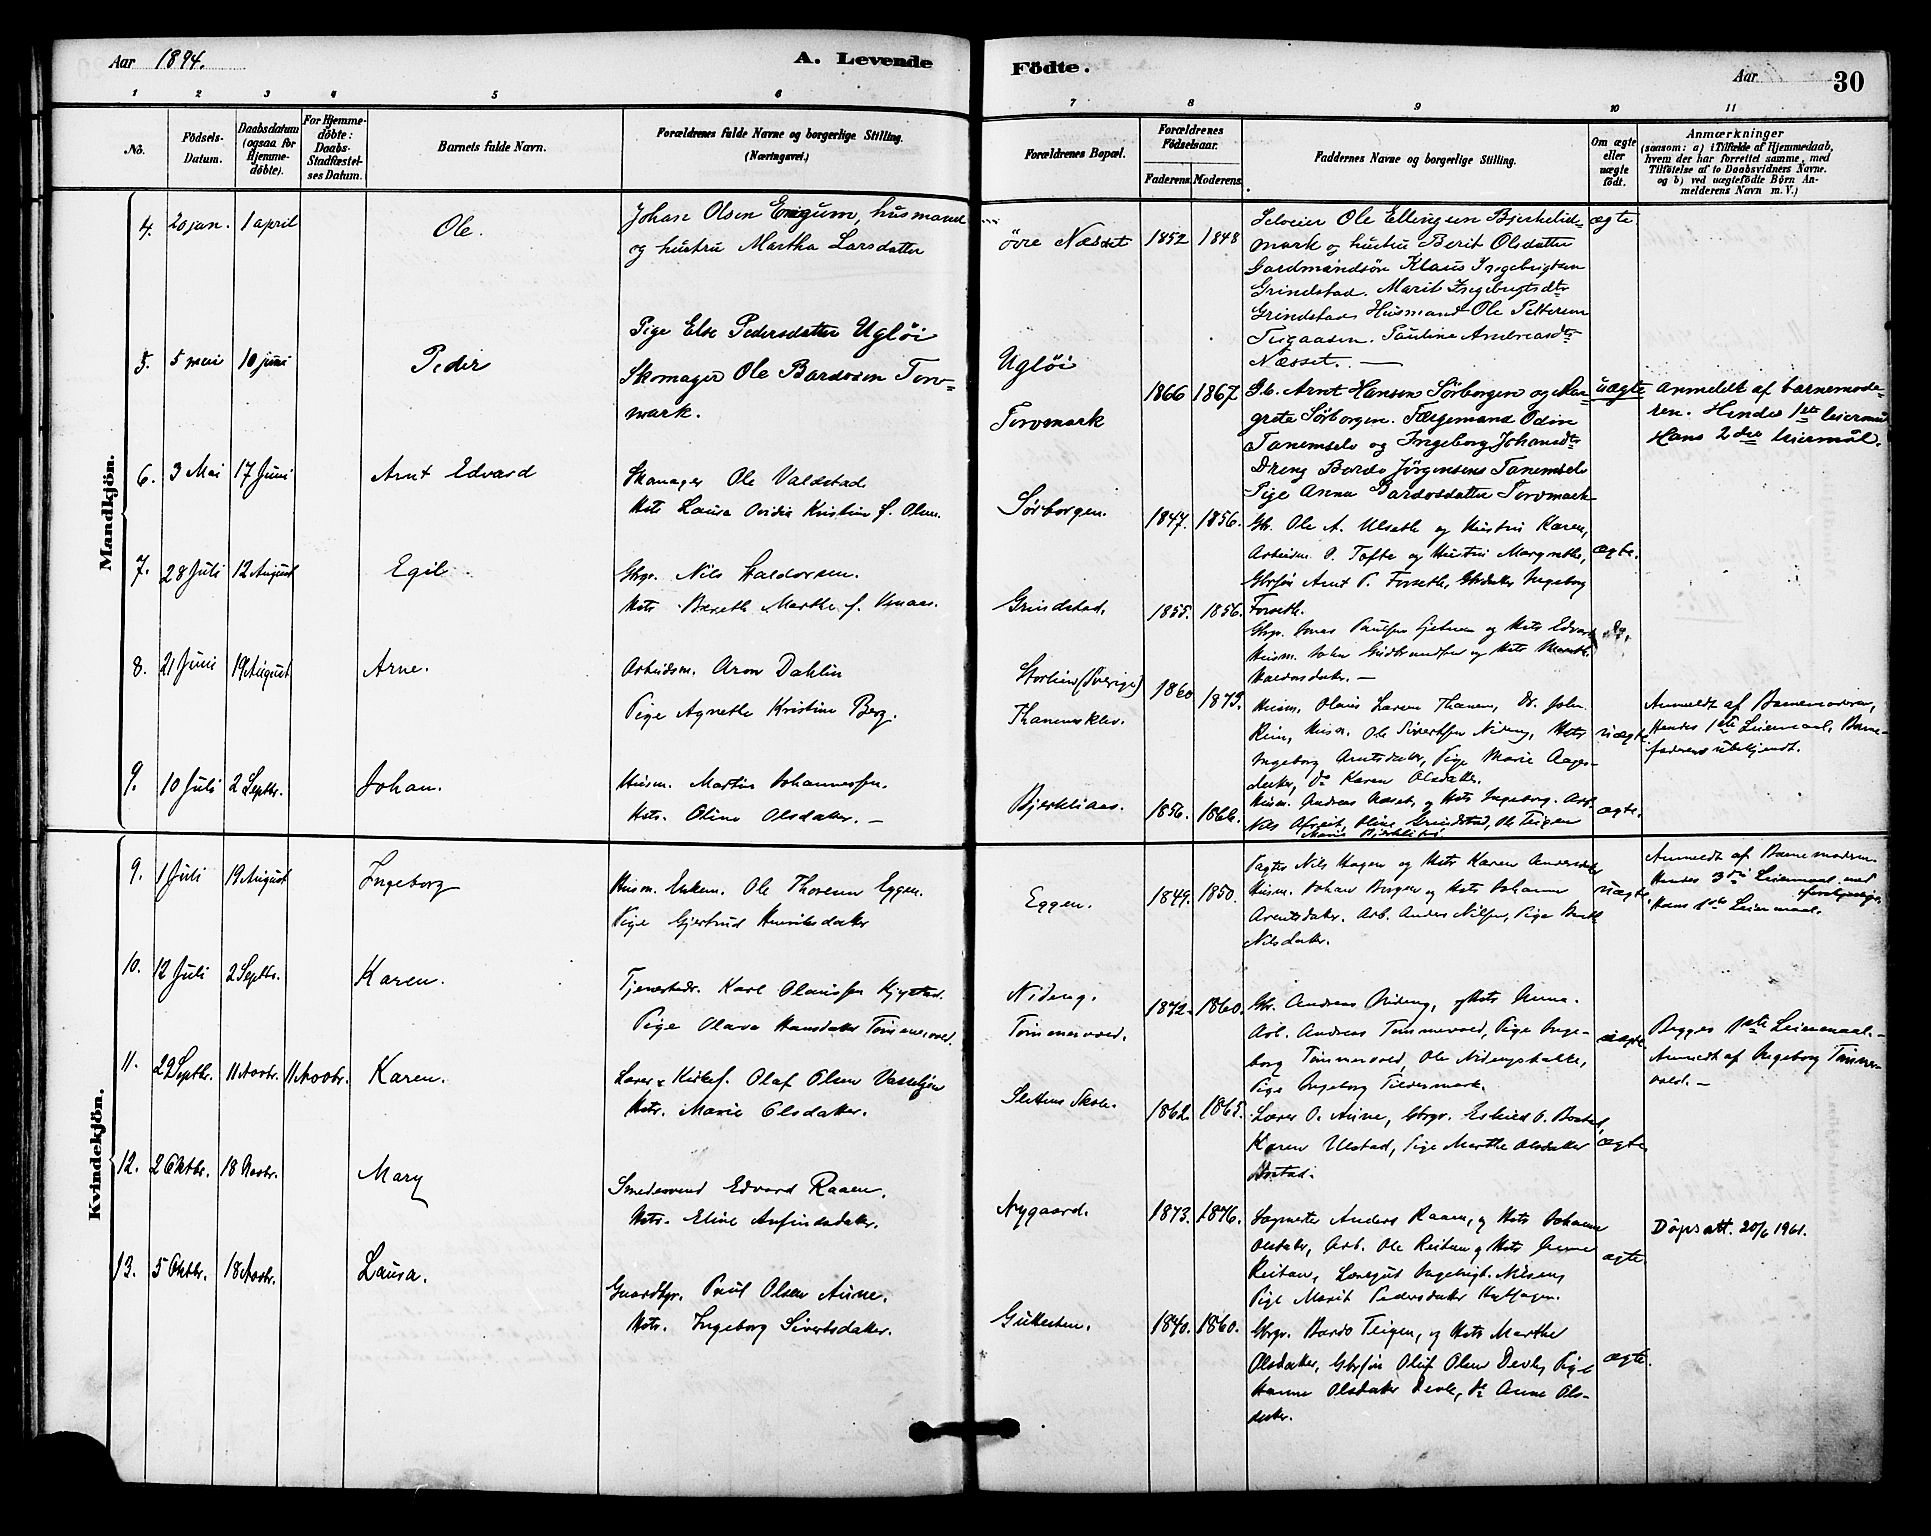 Aar 1894.
A. Levende
Födte.
Aar
30
1 2 3 4 5 6 7 8 9 10 11
No.
Födsels-
Datum.
Daabsdatum
(ogsaa for
Hjemme-
döbte).
For Hjemme-
döbte:
Daabs-
Stadfæstel-
ses Datum.
Barnets fulde Navn.
Forældrenes fulde Navne og borgerlige Stilling.
(Næringsvei.)
Forældrenes Bopæl.
Forældrenes
Födselsaar.
Faderens. Moderens.
Faddernes Navne og borgerlige Stilling.
Om ægte
eller
uægte
födt.
Anmærkninger
(saasom: a) i Tilfælde af Hjemmedaab,
hvem der har forrettet samme, med
Tilföielse af to Daabsvidners Navne.
og b) ved uægtefödte Børn An-
melderens Navn m. V.)
Mandkjön.
4. 20 jan. 1 april
Ole.
Johan Olsen Engum, husmand
og hustru Martha Larsdatter
øvre Næsset
1852 1848
Selveier Ole Ellingsen Bjerkelid-
mark og hustru Berit Olsdatter
Gaardmandsøn Klaus Ingebrigtsen
Grindstad. Marit Ingebrigtsdtr
Grindstad Husmand Ole Pettersen
Teigaasen. Pauline Andreasdtr
Næsset. —
ægte
5. 5 mai 10 juni
Peder
Pige Else Pedersdatter Ugløi
Skomager Ole Bardosen Torv-
mark.
Ugløi
Torvmark
1866 1867
Gb. Arnt Hansen Sørborgen og Mar-
grete Sørborgen. Færgemand Odin
Tanemselv og Ingeborg Johansdtr
Dreng Bardo Jørgensens Tanemselv
Pige Anna Bardosdatter Torvmark
uægte
Anmeldt af barnemode-
ren. Hendes 1ste leiermaal
Hans 2det leiermål.
6. 3 Mai 17 Juni
Arnt Edvard
Skomager Ole Valdstad
Hstr. Laura Ovidia Kristine f. Olsen.
Sørborgen.
1847. 1856.
Gbr. Ole A. Ulseth og Hustru Karen,
Arbeidsm. O. Tofte og Hustru Margrethe,
Gbrsøn Arnt P. Forseth, Gbrdatter Ingeborg
Forseth.
ægte.
7. 28 Juli 12 August
Egil
Gbgr. Nils Haldorsen.
Hstr. Bereth Marthe f.
Grindstad.
1855. 1856.
Gbgr. Jonas Paulsen og Hstr Edvard
Husm. John Gudbrandsen og Hstr Marith
Haldorsdatter. —
do.
8. 21 Juni 19 August
Arne.
Arbeidsm. Aron Dahlin
Pige Agnethe Kristine Berg.
Storlien (Sverige)
Thanemsklev.
1860 1873.
Husm. Olaus Larsen Thanem, Gb. John
Rein, Husm. Ole Sivertsen Nideng, Hstr
Ingeborg Arntsdatter, Pige Marie Aages-
datter, do Karen Olsdatter.
uægte
Anmeldt af Barnemoderen,
Hendes 1ste Leiermaal. Barne-
faderens ubekjendt.
9. 10 Juli 2 Septbr.
Johan.
Husm. Martin Johannessen.
Hstr. Oline Olsdatter. —
Bjerkliaas.
1856. 1866.
Husm. Andreas Næset, og Hstr Ingeborg. Arb.
Nils, Oline Grindstad, Ole Teigen
Marie Bjerkliaas
ægte.
Kvindekjön.
9. 1 Juli 19 August
Ingeborg
Husm. Enkem. Ole Thoresen Eggen.
Pige Gjertrud Henriksdatter
Eggen.
1849. 1850.
Pagter Nils Hagen og Hstr Karen Andersdatter
Husm. Johan Borgen og Hstr Johanna
Arentsdatter. Arb. Anders Nilsen, Pige Berit
Nilsdatter.
uægte
Anmeldt af Barnemoderen.
Hendes 3die Leiermaal med
forskjellige,
Hans 1ste Leiermaal.
10. 12 Juli 2 Septbr.
Karen.
Tjenestedr. Karl Olaussen Kjystad.
Pige Olava Hansdatter Tømmervold.
Nideng.
Tømmervold.
1872. 1860.
Gbr. Andreas Nideng, og Hstr Anna.
Arb. Andreas Tømmervold, Pige Inge-
borg Tømmervold, Ole Nidengsbakke,
Pige Ingeborg Tillermark.
uægte
Begges 1ste Leiermaal.
Anmeldt af Ingeborg Tømmer-
vold. —
11. 29 Septbr. 11 Novbr. 11 Novbr.
Karen.
Lærer & Kirkes. Olaf Olsen Vasseljen
Hstr. Marie Olsdatter.
Slettens Skole.
1862. 1865.
Lærer O. Aune, Gbrgr. Eskild O. Bostad,
Karen Ulstad, Pige Marthe Olsdatter
Bostad.
ægte
12. 2 Oktbr. 18 Novbr.
Mary
Smedesvend Edvard Raaen.
Hstr. Eline Anfindsdatter.
Nygaard.
1873. 1876.
Sagmester Anders Raaen, og Hstr Johanna
Olsdatter, Arb. Ole Reitan og Hstr Anna
Reitan, Læregut Ingebrigt Nilsen,
Pige Marit Pedersdatter.
ægte.
Dåpsatt. 20/6 1961.
13. 5 Oktbr. 18 Novbr.
Laura.
Gaardbgr. Paul Olsen Aune.
Hstr. Ingeborg Sivertsdatter.
1840. 1860.
Gbrgr. Bardo Teigen, og Hstr Marthe
Olsdatter, Gbrsøn Oluf Olsen Devle, Pige
Hanna Olsdatter Devle, do Anne Ols-
datter.
ægte.